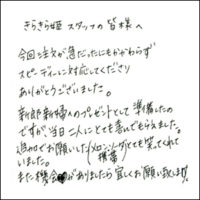 きらきら姫 スタッフの皆様へ
今回注文が急だったにもかかわらず
スピーディーに対応してくださり
ありがとうございました。
新郎新婦へのプレゼントとして準備したの
ですが、当日二人にとても喜んでもらえました。
追加でお願いした(メロンソーダ)とても笑ってくれて
携帯
いました。
また機会がありましたら宜しくお願い致します